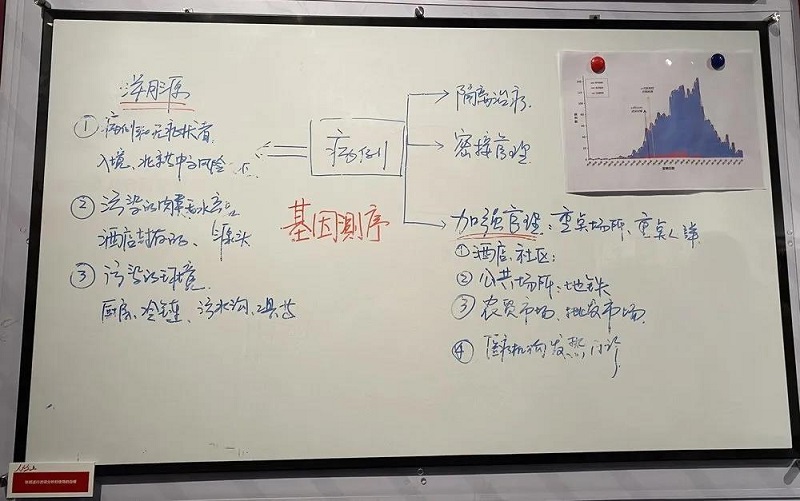 溯源
① 病例和无症状者
入境、北京中高风险
② 污染的肉禽等水产品
酒店封存的、罐头
③ 污染的环境
厨房、冷链、污水沟、
病例
基因测序
隔离治疗
密接管理
加强管理：重点场所、重点人群
①酒店、社区：
②公共场所、地铁
③农贸市场、批发市场
④医疗机构发热门诊